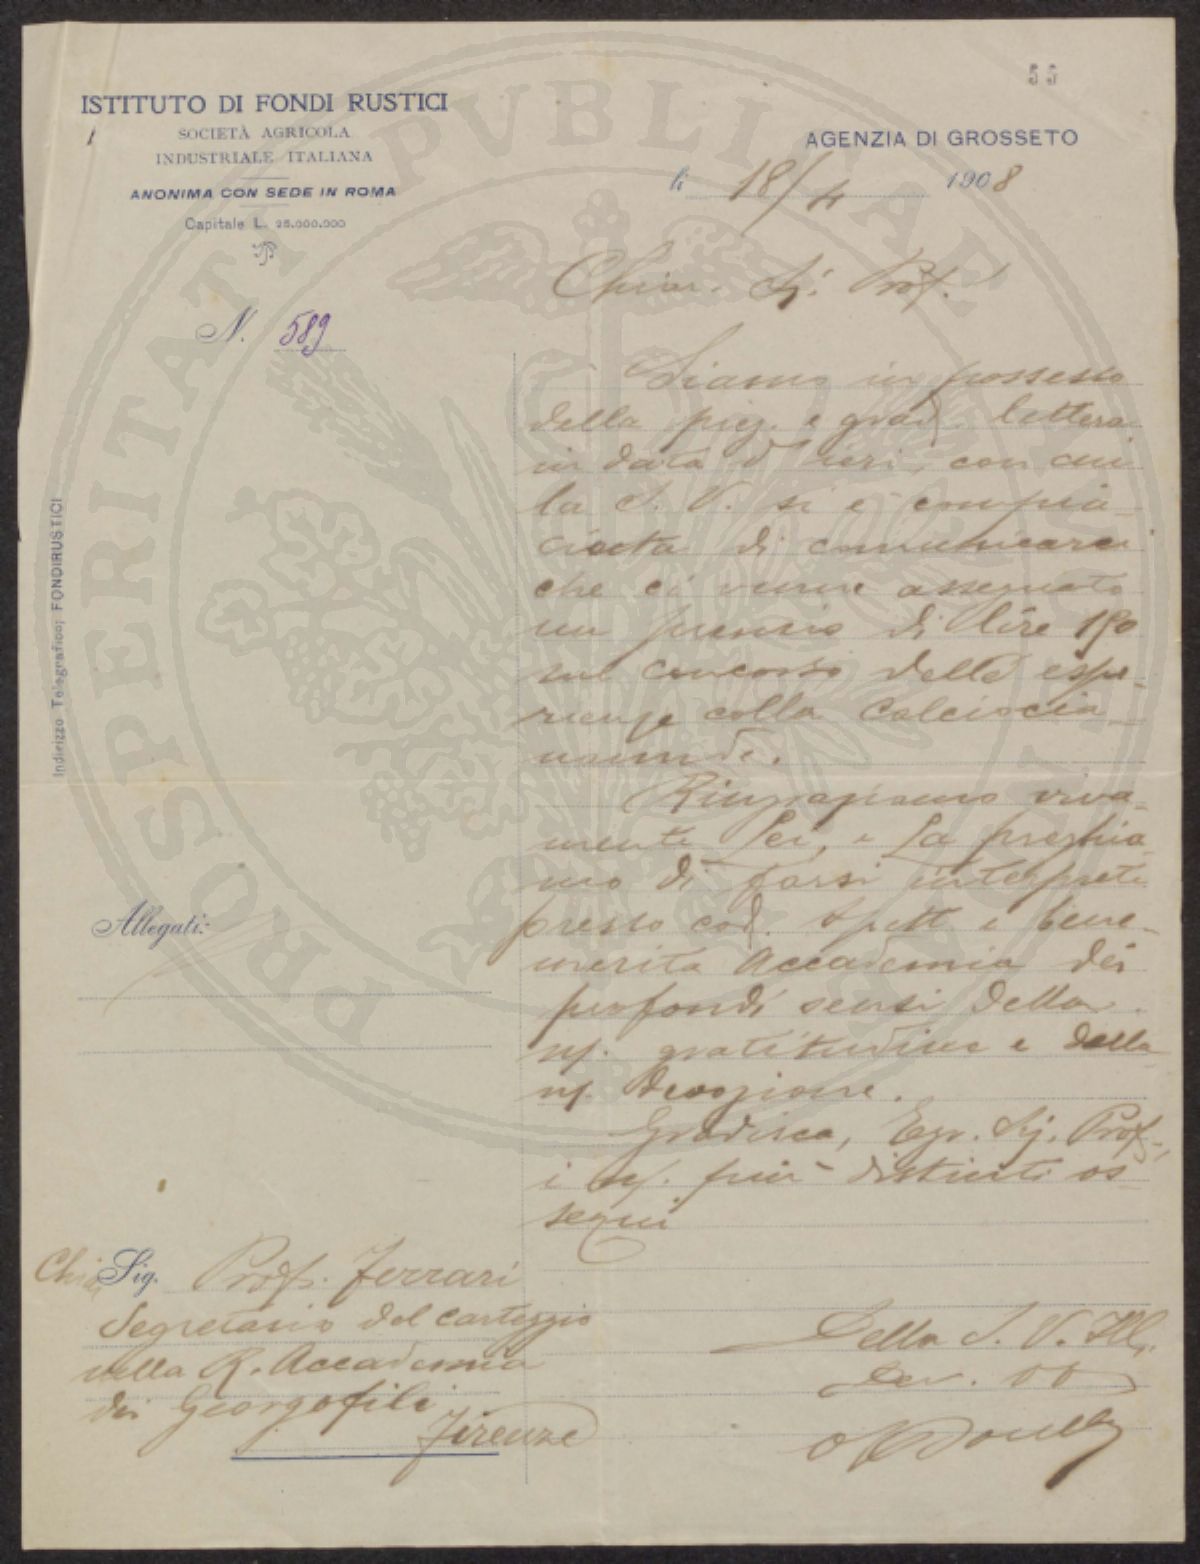 55
ISTITUTO DI FONDI RUSTICI
SOCIETÀ AGRICOLA
INDUSTRIALE ITALIANA
ANONIMA CON SEDE IN ROMA
Capitale L. 25.000.000
AGENZIA DI GROSSETO
li 18/4 1908
N. 589
Indirizzo Telegrafico: FONDIRUSTICI
Chiar. Sig. Prof.
Siamo in possesso
della preg. e grad. lettera
in data d'ieri, con cui
la S. V. si è compia-
ciuta di comunicarci
che ci venne assegnato
un premio di lire 150
sul concorso delle espe-
rienze colla Calciocia-
namide.
Ringraziamo viva-
mente Lei, e La preghia-
mo di farsi interprete
presso cod. Spett. e bene-
merita Accademia dei
profondi sensi della
ns. gratitudine e della
ns. devozione.
Gradisca, Egr. Sig. Prof.,
i ns. più distinti os-
sequi
Della S. V. Ill.
Dev.
Allegati:
Chiar. Sig. Prof. Ferrari
Segretario del carteggio
nella R. Accademia
dei Georgofili
Firenze
PROSPERITATI PVBLICAE